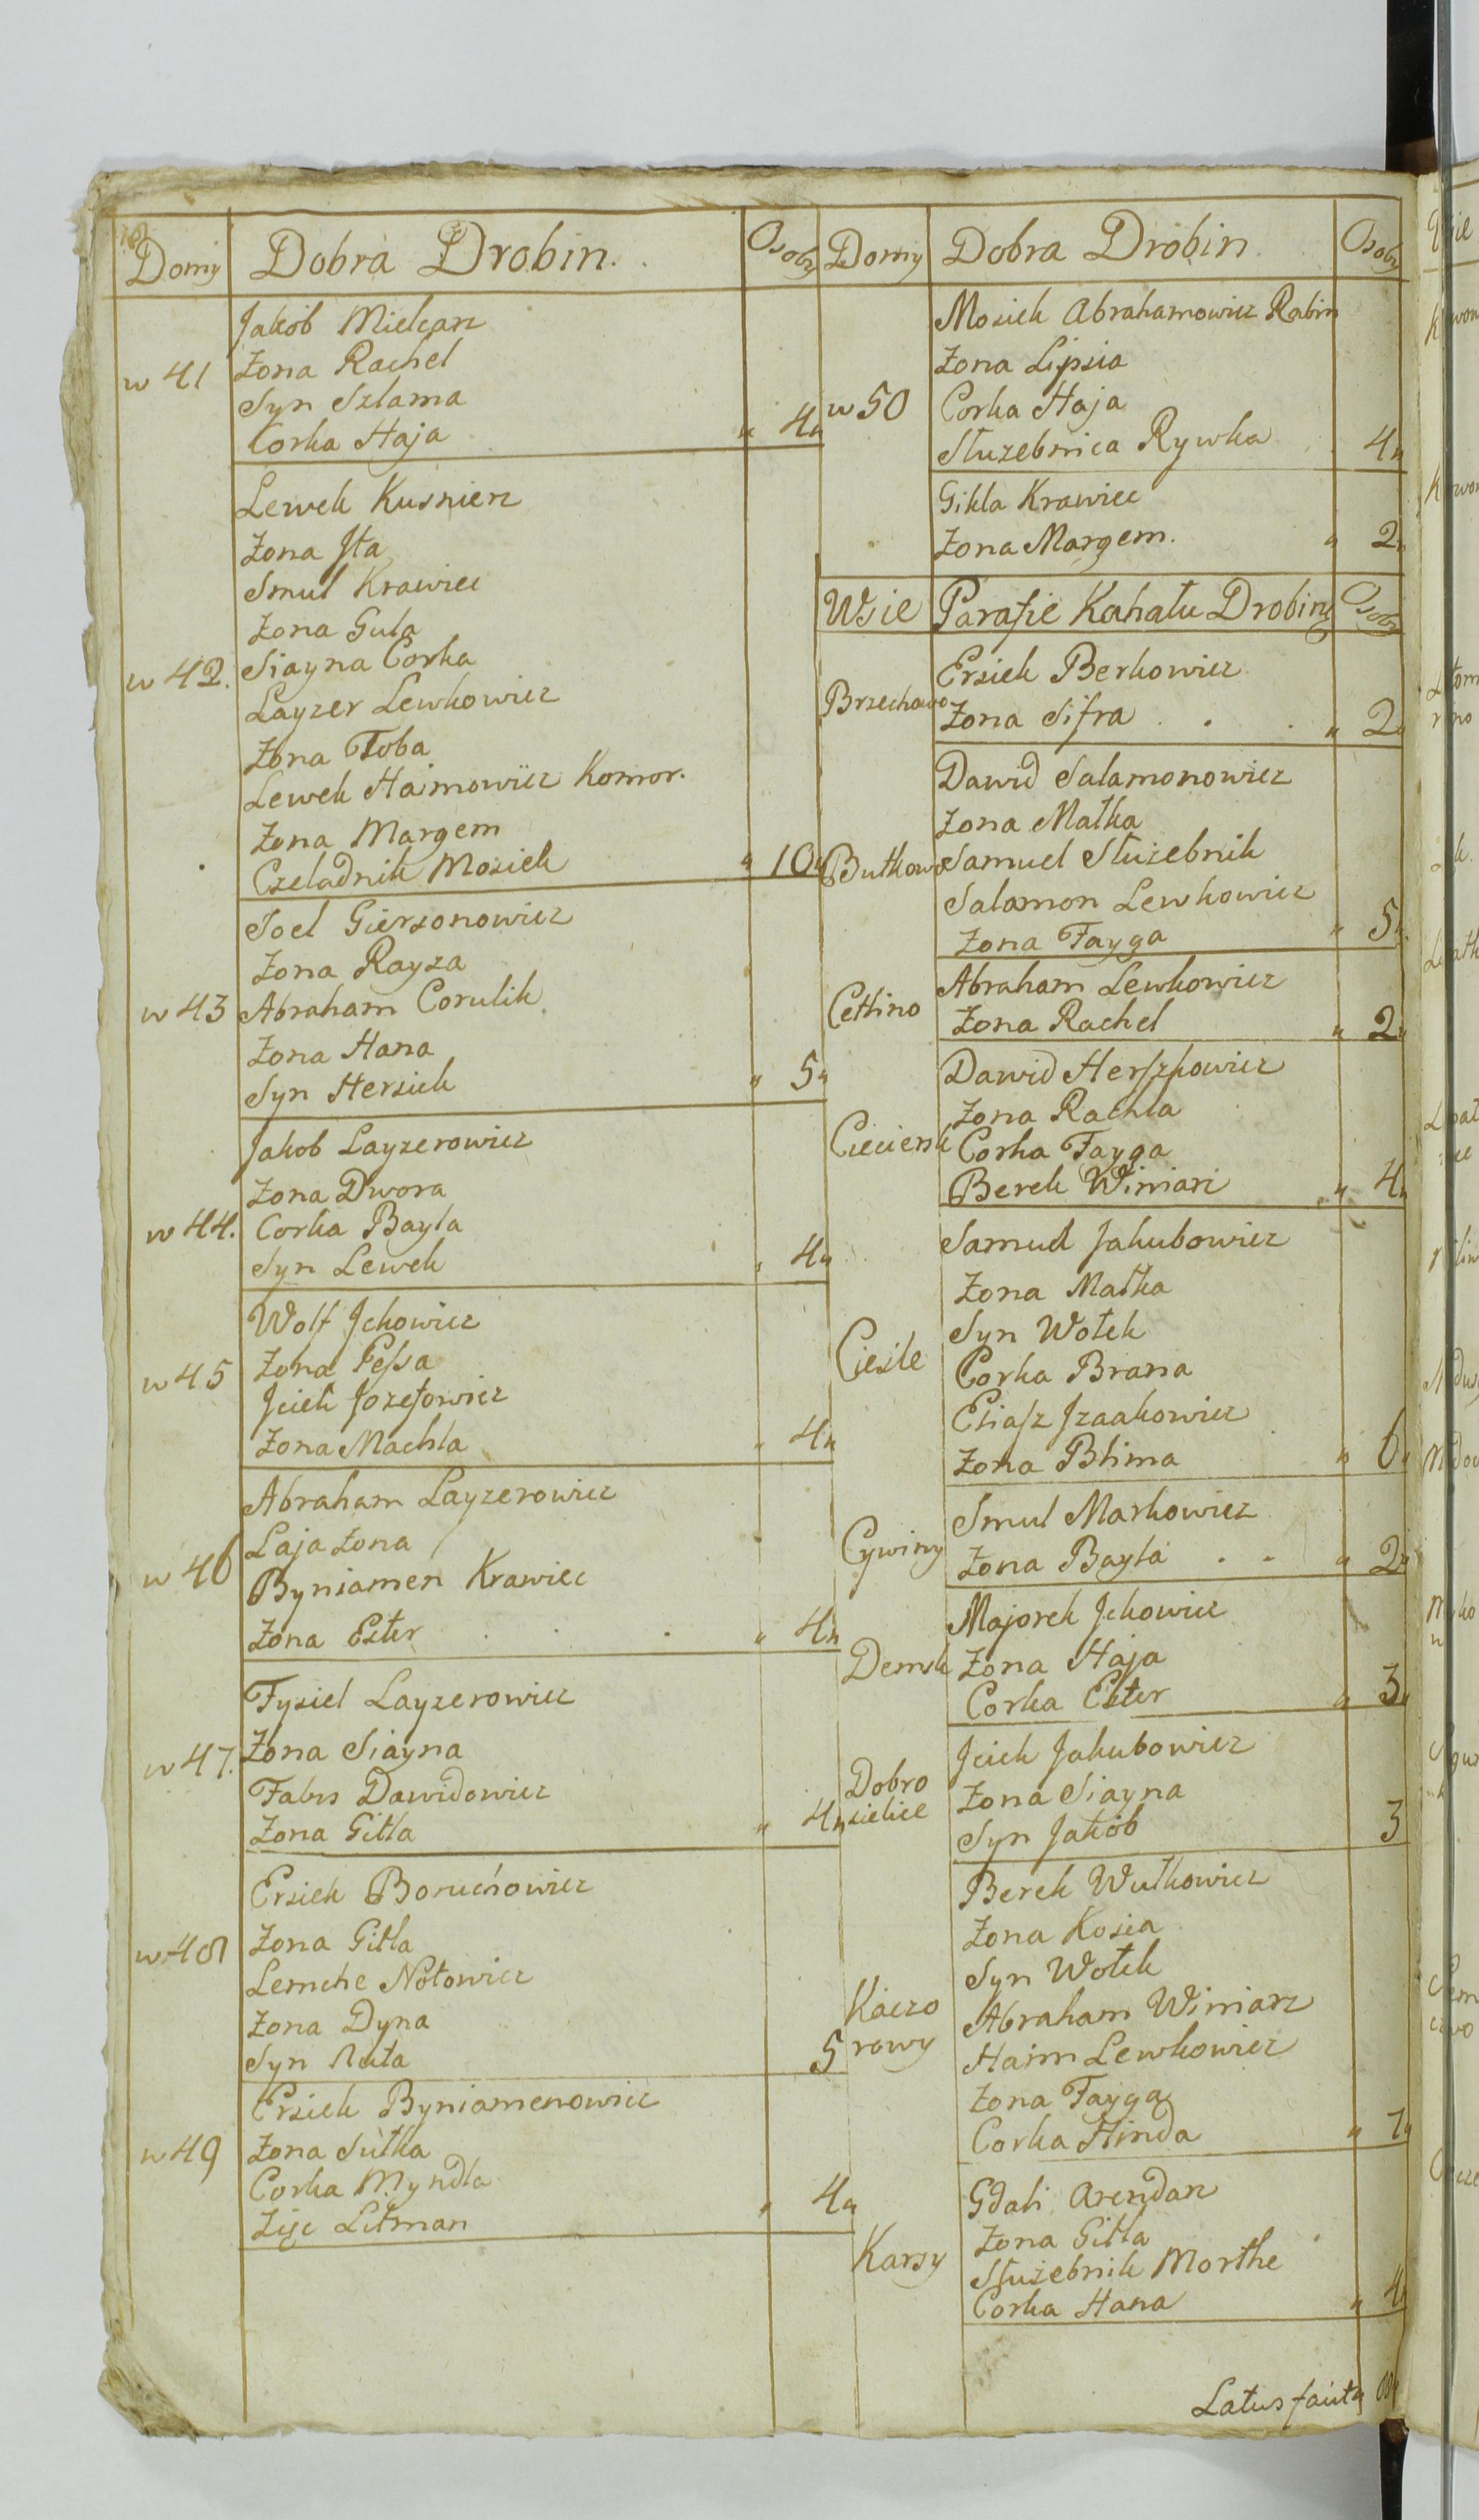 Domy Dobra Drobin. Osoby
w 41
Jakob Mielcarz
Zona Rachel
Syn Szlama
Corka Haja " 4"
w 42.
Lewek Kusnierz
Zona Jta
Smul Krawiec
Zona Guta
Siayna Corka
Layzer Lewkowicz
Zona Toba
Lewek Haimowicz Komor.
Zona Margem
Czeladnik Mosiek " 10"
w 43
Joel Giersonowicz
Zona Rayza
Abraham Corulik
Zona Hana
Syn Hersiek " 5"
w 44.
Jakob Layzerowicz
Zona Dwora
Corka Bayla
Syn Lewek " 4"
w 45
Wolf Jckowicz
Zona Pessa
Jciek Jozefowicz
Zona Machla " 4"
w 46
Abraham Layzerowicz
Laja Zona
Byniamen Krawiec
Zona Ester " 4"
w 47.
Fysiel Layzerowicz
Zona Siayna
Fabis Dawidowicz
Zona Gitla " 4"
w 48
Ersiek Boruchowicz
Zona Gitla
Lemche Notowicz
Zona Dyna
Syn Nuta 5
w 49
Ersiek Byniamenowicz
Zona Sutka
Corka Myndla
Zięc Litman " 4"
Domy Dobra Drobin Osoby
w 50
Mosiek Abrahamowicz Rabin
Zona Lipsia
Corka Haja
Sluzebnica Rywka 4"
Gikla Krawiec
Zona Margem. " 2"
Wsie Parafie Kahału Drobiny Osoby
Brzechowo
Ersiek Berkowicz
Zona Sifra " 2"
Butkowo
Dawid Salamonowicz
Zona Małka
Samuel Służebnik
Salomon Lewkowicz
Zona Fayga " 5"
Cetlino
Abraham Lewkowicz
Zona Rachel " 2"
Cieciersk
Dawid Herszkowicz
Zona Rachla
Corka Fayga
Berek Winiarz " 4"
Ciesle
Samuel Jakubowicz
Zona Małka
Syn Wołek
Corka Brana
Eliasz Jzaakowicz
Zona Blima " 6"
Cywiny
Smul Markowicz
Zona Bayla " 2"
Demsk
Majorek Jckowicz
Zona Haja
Corka Ester " 3"
Dobro
sielice
Jciek Jakubowicz
Zona Siayna
Syn Jakób 3
Kaczo
rowy
Berek Wulkowicz
Zona Kosia
Syn Wołek
Abraham Winiarz
Haim Lewkowicz
Zona Fayga
Corka Hinda " 7"
Karsy
Gdali Arendarz
Zona Gitla
Służebnik Morthe
Corka Hana " 4"
Latus facit